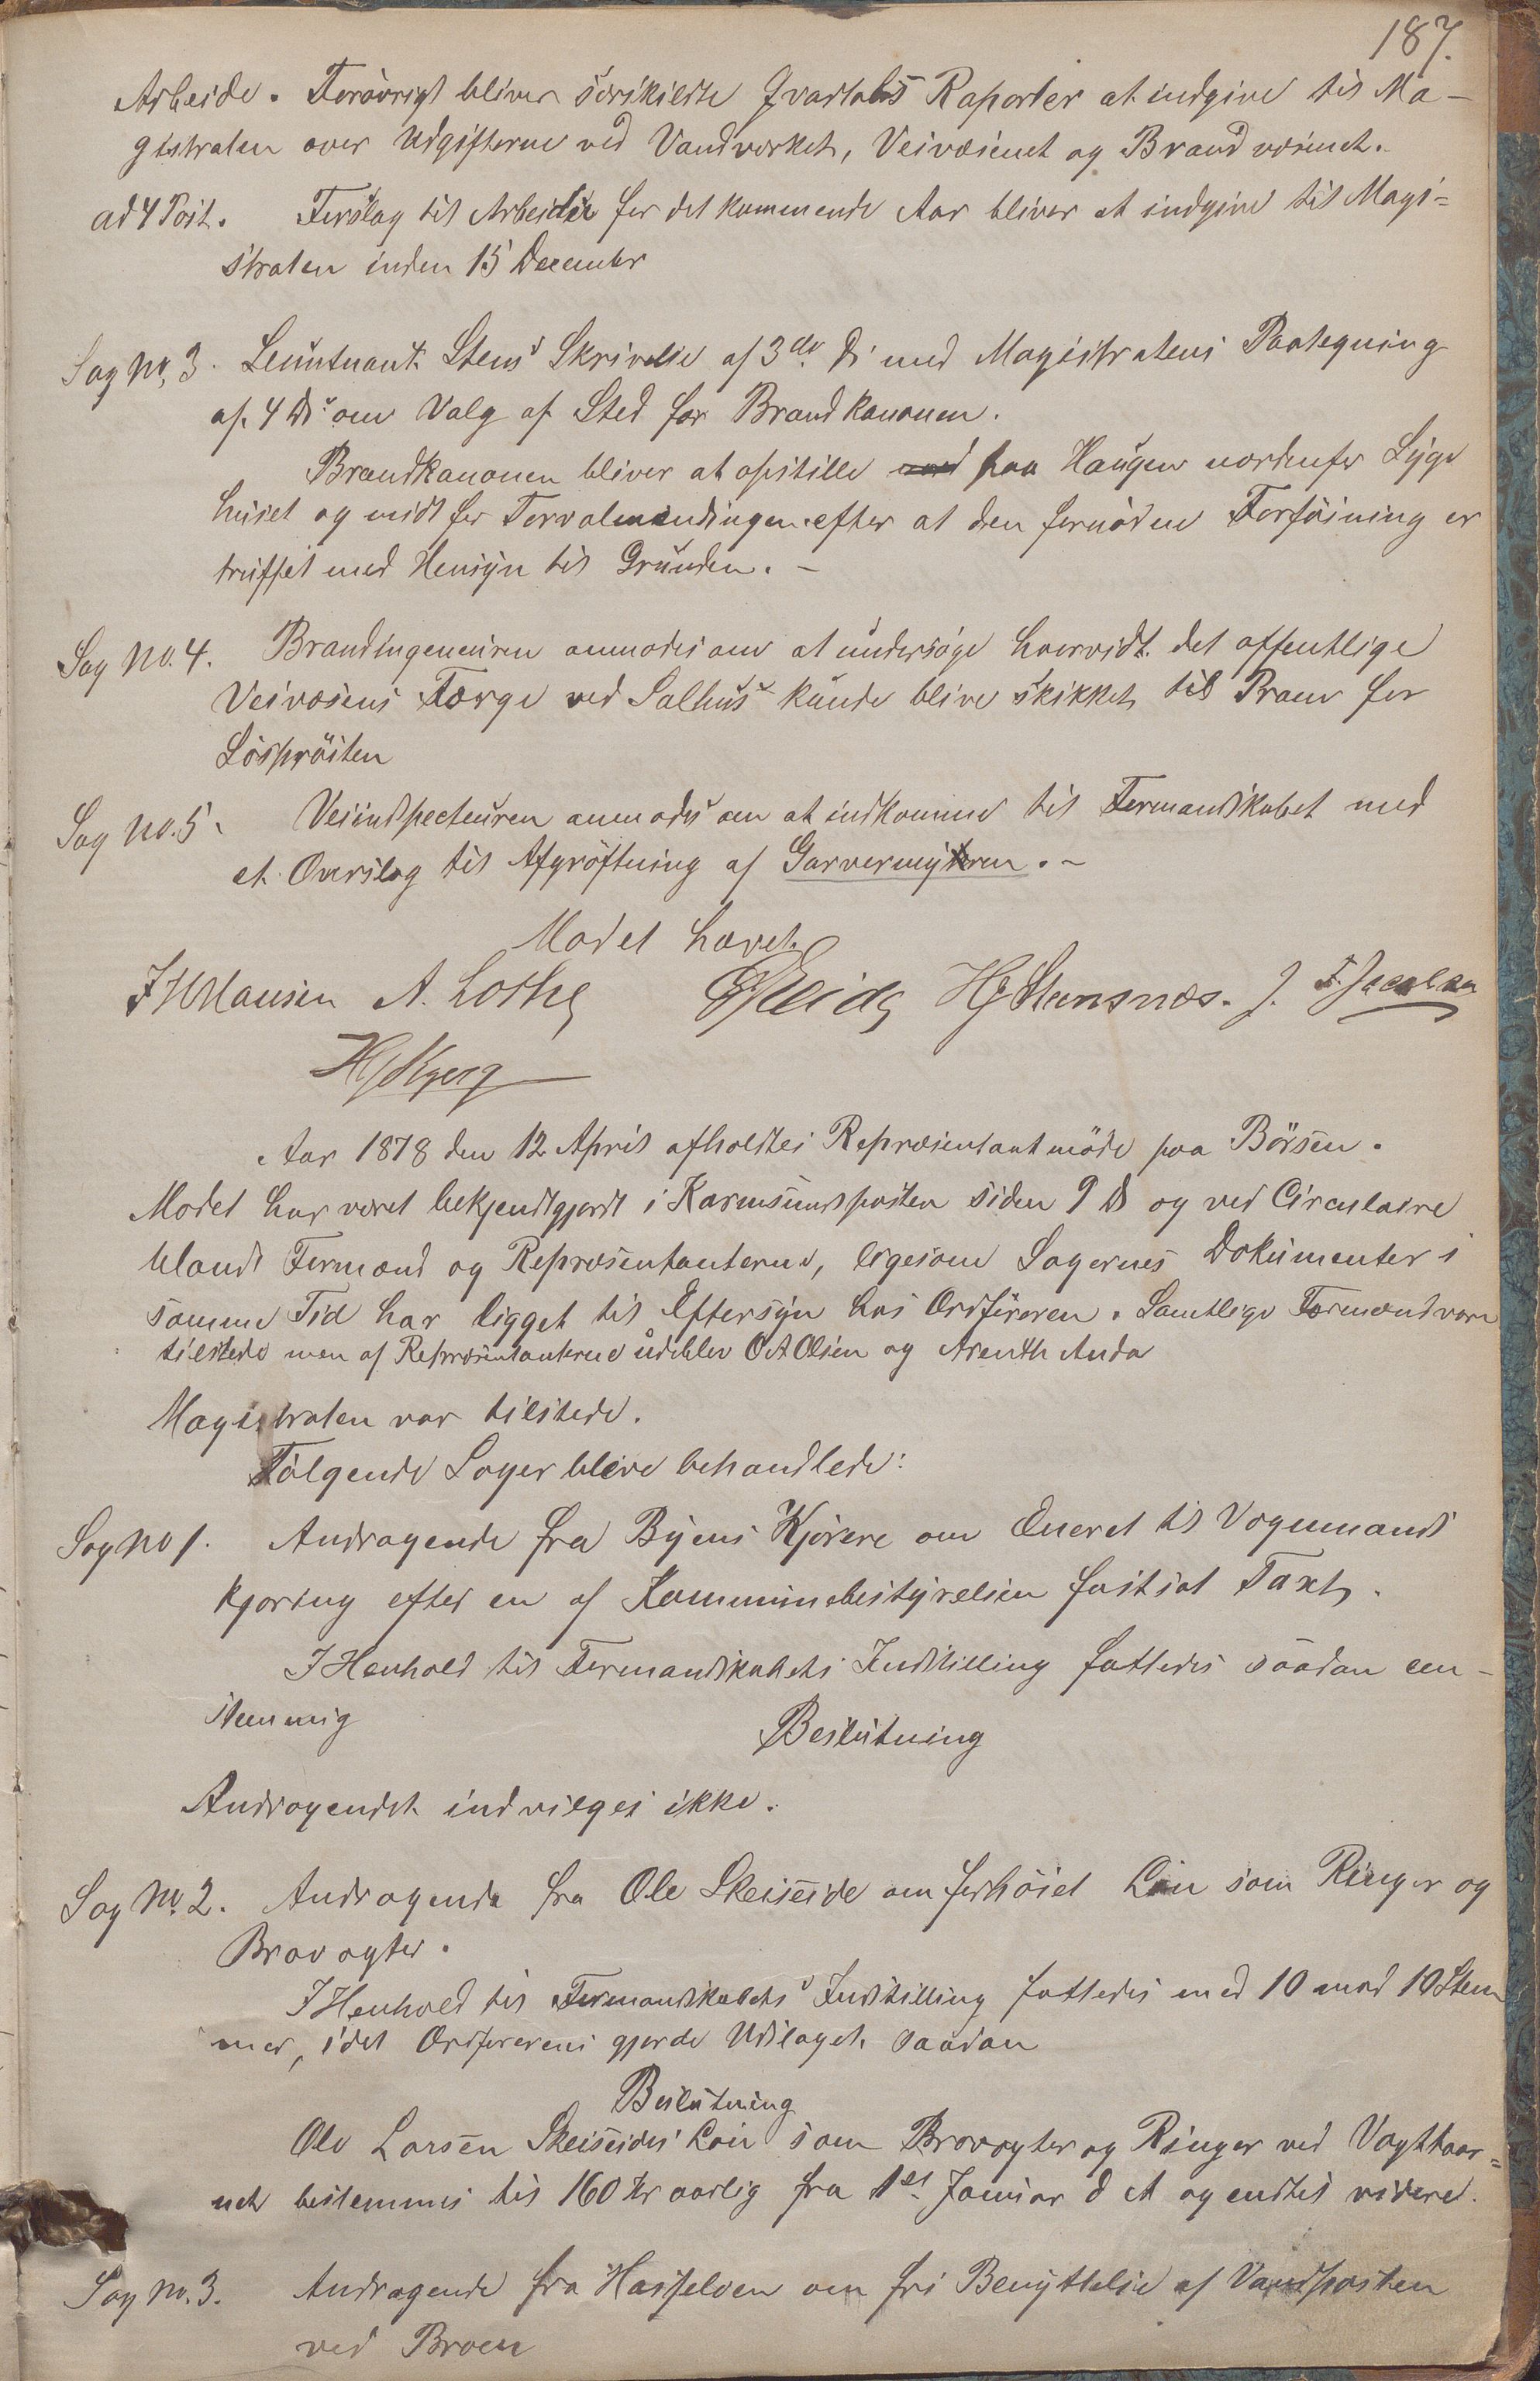 187.
Arbeide. Forøvrigt bliver særskildte Qvartals Raporter at indgive til Ma-
gistraten over Udgifterne ved Vandværket, Veivæsenet og Brandvæsenet.
ad 4 Post. Forslag til Arbeider for det kommende Aar bliver at indgive til Magi=
straten inden 15 December
Sag No. 3. Leuntnant Stens Skrivelse af 3de Ds med Magistratens Paategning
af 4 Ds om Valg af Sted for Brandkanonen.
Brandkanonen bliver at opstille paa Haugen nordenfor Syge
huset og midt for Torvalmendingen efter at den fornødne Forføining er
truffet med Hensyn til Grunden. -
Sag No. 4. Brandingeneuren anmodes om at undersøge hvorvidt det offentlige
Veivæsens Færge ved Salhus kunde blive skikket til Pram for
Løssprøiten
Sag No. 5. Veiinspecteuren anmodes om at indkomme til Formandskabet med
et Overslag til Afgrøftning af Garvermyren. -
Mødet hævet.
A. Lothe H J Stensnæs. J. F. Jacobsen
Aar 1878 den 12 April afholdtes Repræsentantmøde paa Børsen.
Mødet har været bekjendtgjordt i Karmsundsposten siden 9 Ds og ved Circulaire
blandt Formænd og Repræsentanterne, ligesom Sagernes Dokumenter i
samme Tid har ligget til Eftersyn hos Ordføreren. Samtlige Formænd vare
tilstede men af Repræsentanterne udeblev O A Olsen og Arenth Anda
Magistraten var tilstede.
Følgende Sager bleve behandlede:
Sag No 1. Andragende fra Byens Kjørere om Eneret til Vognmands
kjøring efter en af Kommunebestyrelsen fastsat Taxt.
I Henhold til Formandskabets Indstilling fattedes saadan een-
stemmig
Beslutning
Andragendet indvilges ikke.
Sag No. 2. Andragende fra Ole Skeiseide om forhøiet Løn som Ringer og
Brovogter.
I Henhold til Formandskabets Indstilling fattedes med 10 mod 10 Stem
mer, idet Ordførerens gjorde Udslaget saadan
Beslutning
Ole Larsen Skeiseides Løn som Brovogter og Ringer ved Vagttaar=
net bestemmes til 160 Kr aarlig fra 1ste Januar d A og indtil videre.
Sag No. 3. Andragende fra Hasseløen om fri Benyttelse af Vandposten
ved Broen